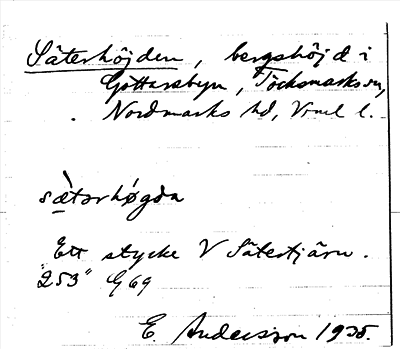 Säterhöjden, bergshöjd i
Göttarsbyn, Töcksmarks sn,
Nordmarks hd, Vrml l.
sæ̀tərhøgda
Ett stycke V Sätertjärn.
"253" G 69
E. Andersson 1935.